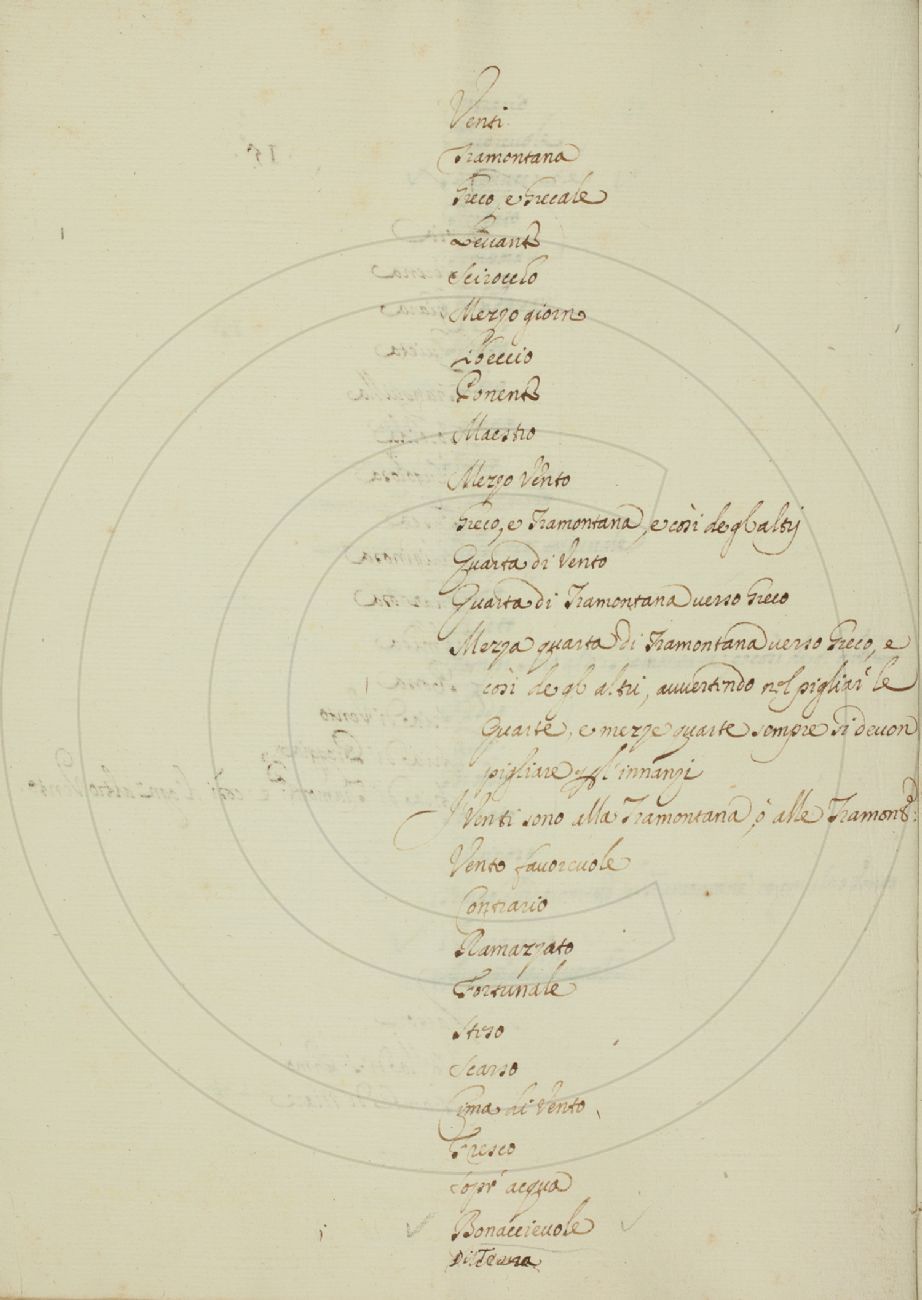 Venti
Tramontana
Greco, e Grecale
Levante
Scirocco
Mezzo giorno
Libeccio
Ponente
Maestro
Mezzo Vento
Greco, e Tramontana, e così de gl'altri
Quarta di Vento
Quarta di Tramontana verso Greco
Mezza quarta di Tramontana verso Greco, e
così de gl'altri, avvertendo nel pigliar le
Quarte, e mezze quarte sempre si devon
pigliare innanzi
Venti sono alla Tramontana, ò alle Tramont:
Vento favorevole
Contrario
Ramazzato
Fortunale
Steso
Scarso
Cima di Vento
Fresco
Sopr'acqua
Bonaccievole
Di Terra